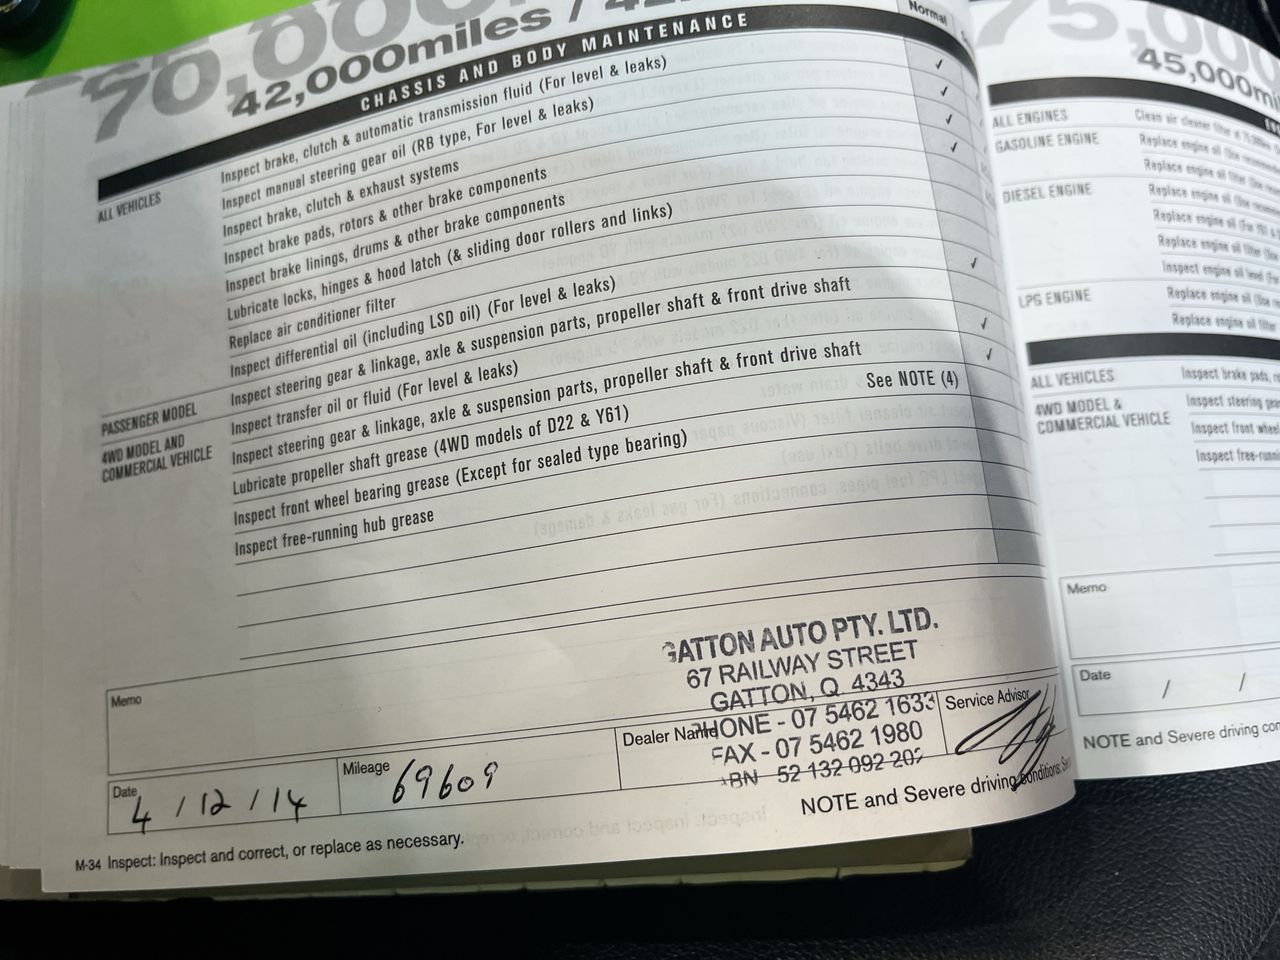 70,00
42,000miles /
CHASSIS AND BODY MAINTENANCE
Normal
ALL VEHICLES
Inspect brake, clutch & automatic transmission fluid (For level & leaks)
Inspect manual steering gear oil (RB type, For level & leaks)
Inspect brake, clutch & exhaust systems
Inspect brake pads, rotors & other brake components
Inspect brake linings, drums & other brake components
Lubricate locks, hinges & hood latch (& sliding door rollers and links)
Replace air conditioner filter
Inspect differential oil (including LSD oil) (For level & leaks)
PASSENGER MODEL
Inspect steering gear & linkage, axle & suspension parts, propeller shaft & front drive shaft
4WD MODEL AND
COMMERCIAL VEHICLE
Inspect transfer oil or fluid (For level & leaks)
Inspect steering gear & linkage, axle & suspension parts, propeller shaft & front drive shaft
Lubricate propeller shaft grease (4WD models of D22 & Y61)
See NOTE (4)
Inspect front wheel bearing grease (Except for sealed type bearing)
Inspect free-running hub grease
Memo
GATTON AUTO PTY. LTD.
67 RAILWAY STREET
GATTON, Q. 4343
PHONE - 07 5462 1633
FAX - 07 5462 1980
ABN 52 132 092 20
Date
4 / 12 / 14
Mileage
69609
Dealer Name
Service Advisor
NOTE and Severe driving conditions:
M-34 Inspect: Inspect and correct, or replace as necessary.
75,000
45,000mi
ALL ENGINES
Clean air cleaner filter
GASOLINE ENGINE
Replace engine oil
Replace engine oil filter
DIESEL ENGINE
Replace engine oil
Replace engine oil
Replace engine oil filter
Inspect engine oil level
LPG ENGINE
Replace engine oil
Replace engine oil filter
ALL VEHICLES
Inspect brake pads,
4WD MODEL &
COMMERCIAL VEHICLE
Inspect steering gea
Inspect front wheel
Inspect free-runni
Memo
Date
/ /
NOTE and Severe driving con